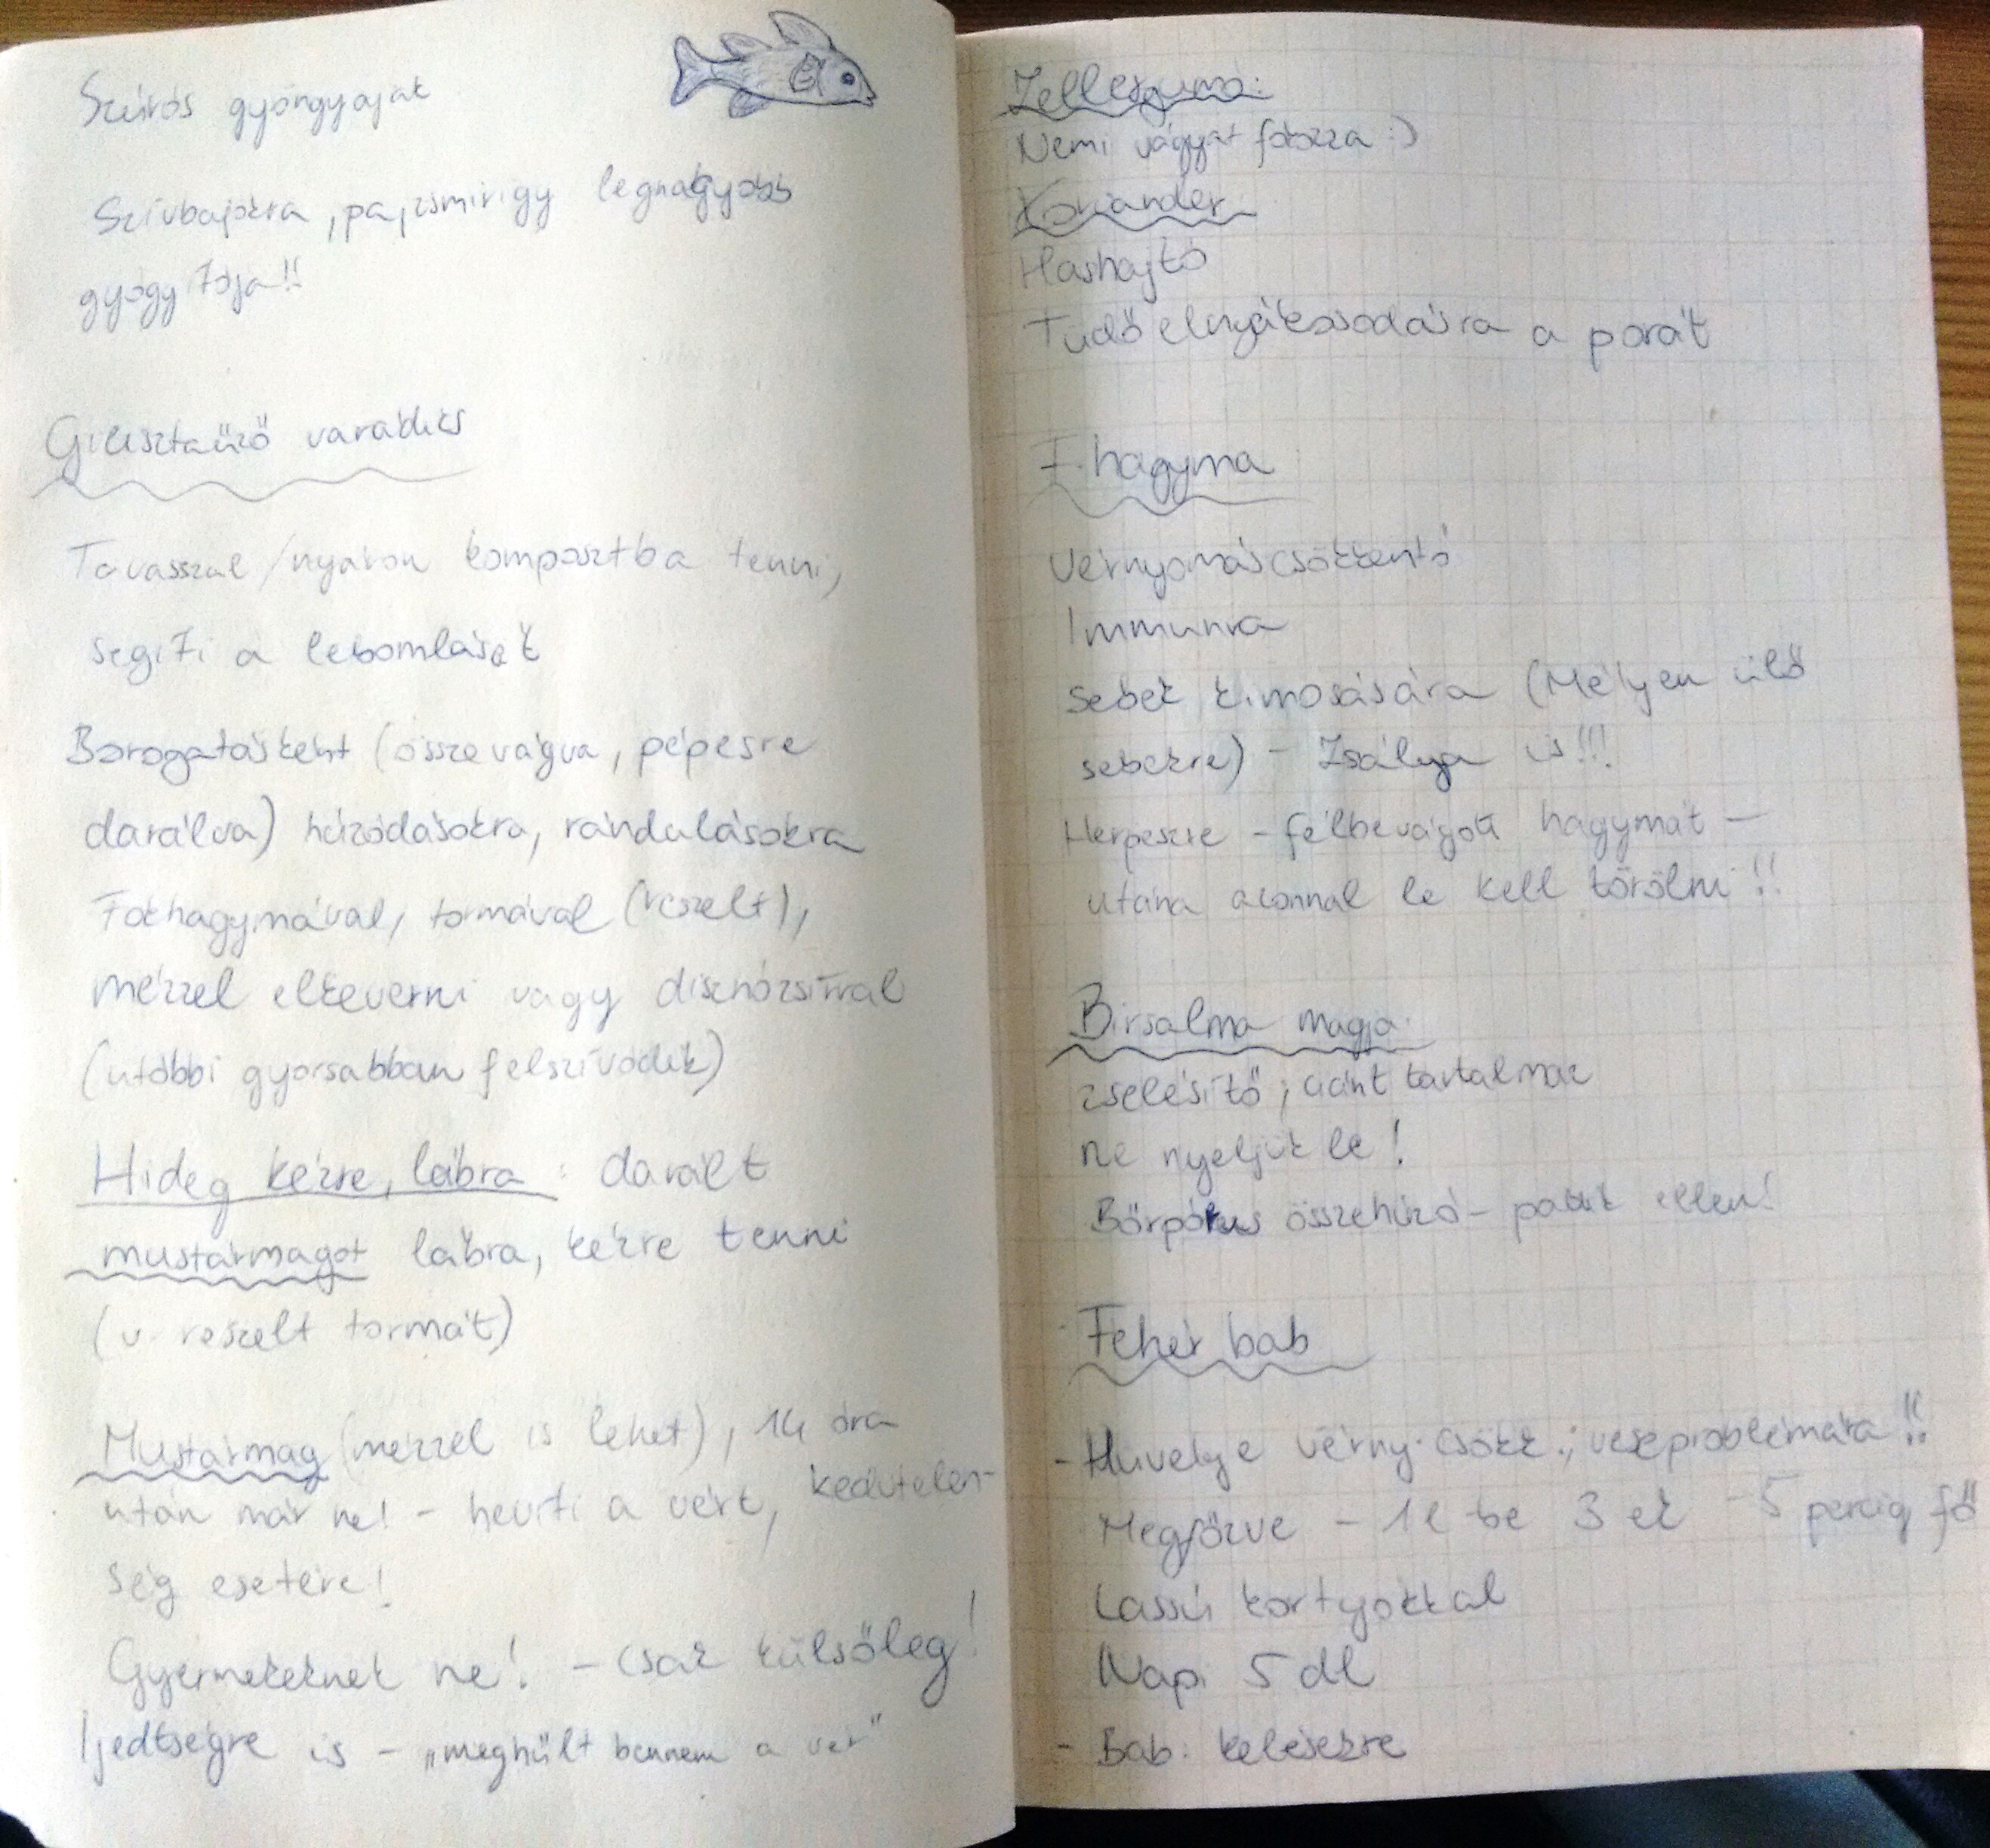 Szúrós gyöngyajak
Szívbajokra, pajzsmirigy legnagyobb
gyógyítója!!
Gilisztaűző varádics
Tavasszal/nyáron komposztba tenni,
segíti a lebomlását
Borogatásként (összevágva, pépesre
darálva) húzódásokra, rándulásokra
Fokhagymával, tormával (reszelt),
mézzel elkeverni vagy disznózsírral
(utóbbi gyorsabban felszívódik)
Hideg kézre, lábra: darált
mustármagot lábra, kézre tenni
(v. reszelt tormát)
Mustármag (mézzel is lehet), 14 óra
után már ne! - hevíti a vért, kedvtelen-
ség esetére!
Gyermekeknek ne! - csak külsőleg!
Ijedtségre is - „meghűlt bennem a vér"
Zellerguma:
Nemi vágyat fokozza :)
Koriander
Hashajtó
Tüdő elnyákosodásra a porát
F. hagyma
Vérnyomáscsökkentő
Immunra
Sebek kimosására (Mélyen ülő
sebekre) - Zsálya is!!!
Herpeszre - félbevágott hagymát -
utána azonnal le kell törölni!!
Birsalma magja
zselésítő; ciánt tartalmaz
ne nyeljük le!
Bőrpórus összehúzó - ellen!
Fehér bab
- Hüvelye vérny. csökk.; veseproblémára!!
Megfőzve - 1 l-be 3 ek - 5 percig fő
Lassú kortyokkal
Napi 5 dl
- Bab: kelésekre